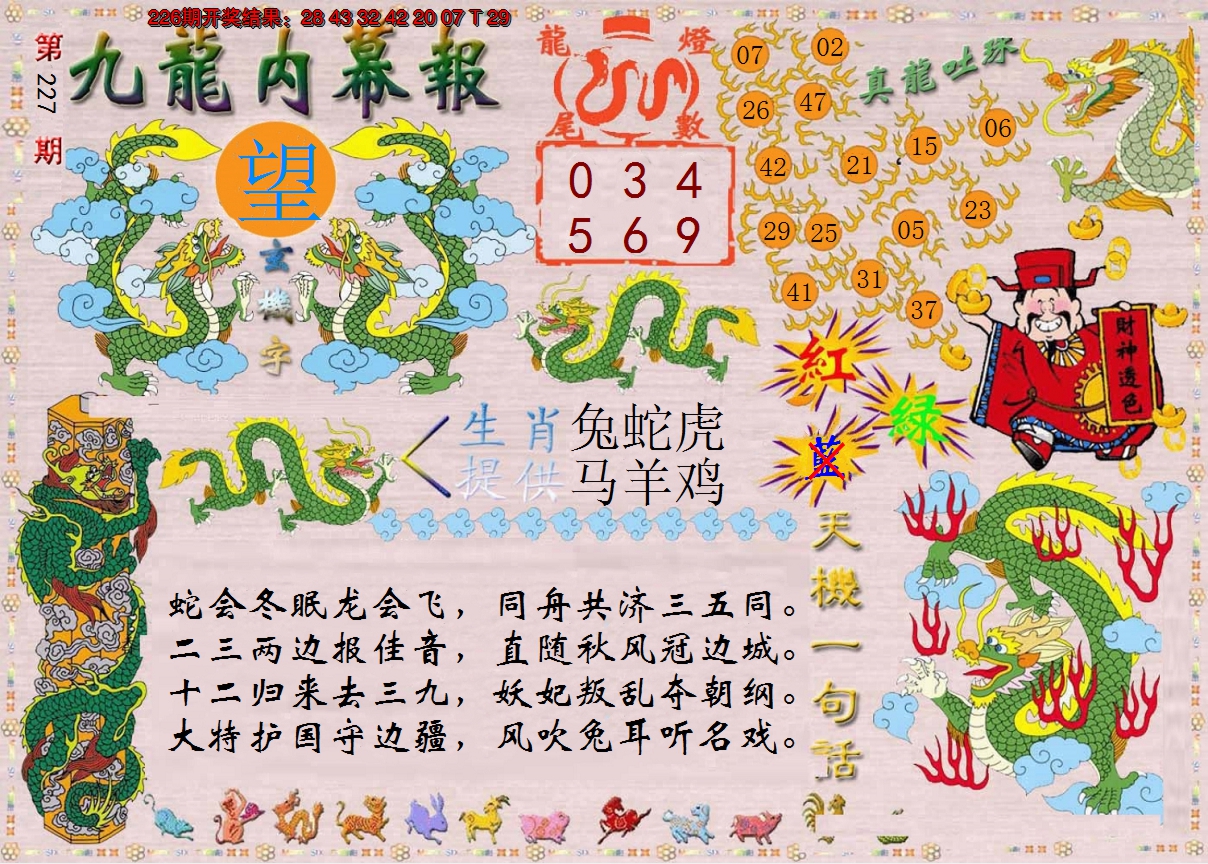 226期开奖结果：28 43 32 42 20 07 T 29
第227期
九龍内幕報
望
玄機字
龍燈尾數
0 3 4
5 6 9
真龍吐珠
07 02
26 47
42 21 15 06
29 25 05 23
41 31 37
財神透色
紅
綠
藍
生肖 兔蛇虎
提供 马羊鸡
蛇会冬眠龙会飞，同舟共济三五同。
二三两边报佳音，直随秋风冠边城。
十二归来去三九，妖妃叛乱夺朝纲。
大特护国守边疆，风吹兔耳听名戏。
天機一句話